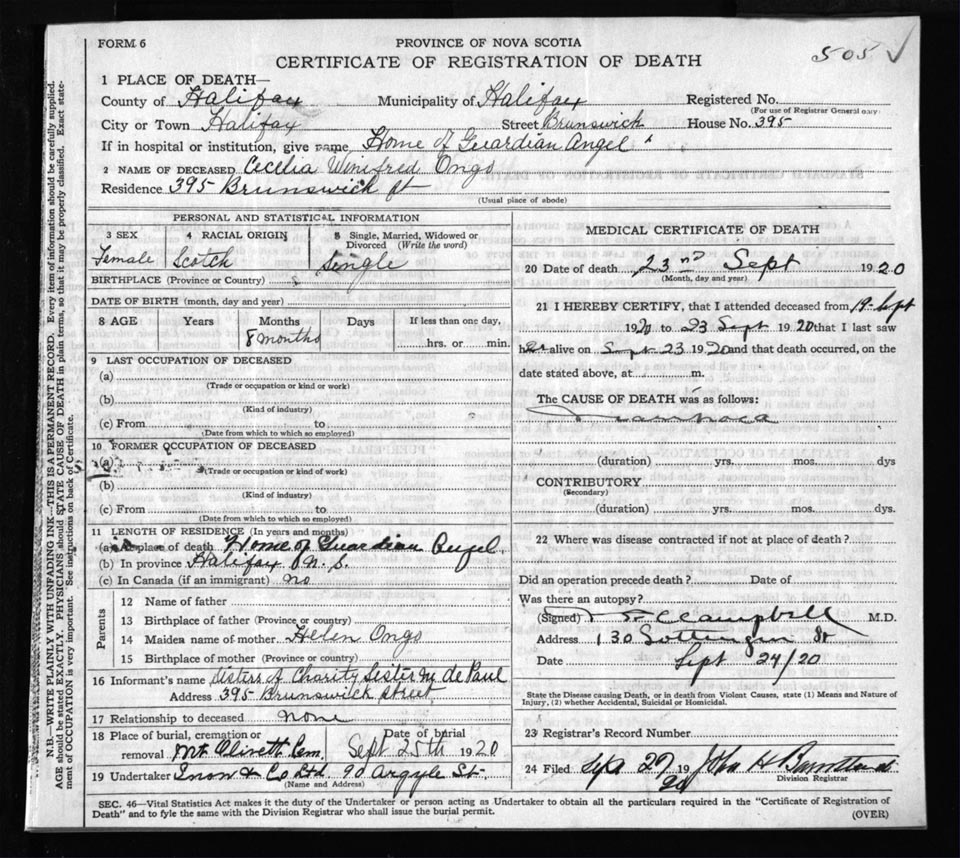 FORM 6
PROVINCE OF NOVA SCOTIA
505 ✓
CERTIFICATE OF REGISTRATION OF DEATH
1 PLACE OF DEATH—
County of Halifax Municipality of Halifax Registered No.
(For use of Registrar General only)
City or Town Halifax Street Brunswick House No. 395
If in hospital or institution, give name Home of Guardian Angel
2 NAME OF DECEASED Cecelia Winifred Ongo
Residence 395 Brunswick St
(Usual place of abode)
PERSONAL AND STATISTICAL INFORMATION
3 SEX 4 RACIAL ORIGIN 5 Single, Married, Widowed or Divorced (Write the word)
Female Scotch Single
BIRTHPLACE (Province or Country)
DATE OF BIRTH (month, day and year)
8 AGE Years Months Days If less than one day,
8 months hrs. or min.
9 LAST OCCUPATION OF DECEASED
(a)
(Trade or occupation or kind of work)
(b)
(Kind of industry)
(c) From to
(Date from which to which so employed)
10 FORMER OCCUPATION OF DECEASED
(a)
(Trade or occupation or kind of work)
(b)
(Kind of industry)
(c) From to
(Date from which to which so employed)
11 LENGTH OF RESIDENCE (In years and months)
(a) At place of death Home of Guardian Angel
(b) In province Halifax N.S.
(c) In Canada (if an immigrant) no
Parents
12 Name of father
13 Birthplace of father (Province or country)
14 Maiden name of mother Helen Ongo
15 Birthplace of mother (Province or country)
16 Informant's name Sisters of Charity Sister M de Paul
Address 395 Brunswick Street
17 Relationship to deceased none
18 Place of burial, cremation or removal Mt Olivett Cem. Date of burial Sept 25th 1920
19 Undertaker Snow & Co Ltd. 90 Argyle St.
(Name and Address)
MEDICAL CERTIFICATE OF DEATH
20 Date of death 23rd Sept 1920
(Month, day and year)
21 I HEREBY CERTIFY, that I attended deceased from 19-Sept
1920 to 23 Sept 1920 that I last saw
her alive on Sept 23 1920 and that death occurred, on the
date stated above, at m.
The CAUSE OF DEATH was as follows:
Diarrhoea
(duration) yrs. mos. dys
CONTRIBUTORY
(Secondary)
(duration) yrs. mos. dys.
22 Where was disease contracted if not at place of death?
Did an operation precede death? Date of
Was there an autopsy?
(Signed) Campbell M.D.
Address 130 Gottingen St
Date Sept 24/20
State the Disease causing Death, or in death from Violent Causes, state (1) Means and Nature of
Injury, (2) whether Accidental, Suicidal or Homicidal.
23 Registrar's Record Number
24 Filed Sept 27 1920 John H
Division Registrar
SEC. 46—Vital Statistics Act makes it the duty of the Undertaker or person acting as Undertaker to obtain all the particulars required in the "Certificate of Registration of
Death" and to fyle the same with the Division Registrar who shall issue the burial permit.
(OVER)
N.B.—WRITE PLAINLY WITH UNFADING INK—THIS IS A PERMANENT RECORD. Every item of information should be carefully supplied.
AGE should be stated EXACTLY. PHYSICIANS should STATE CAUSE OF DEATH in plain terms, so that it may be properly classified. Exact statement of OCCUPATION is very important. See instructions on back of Certificate.